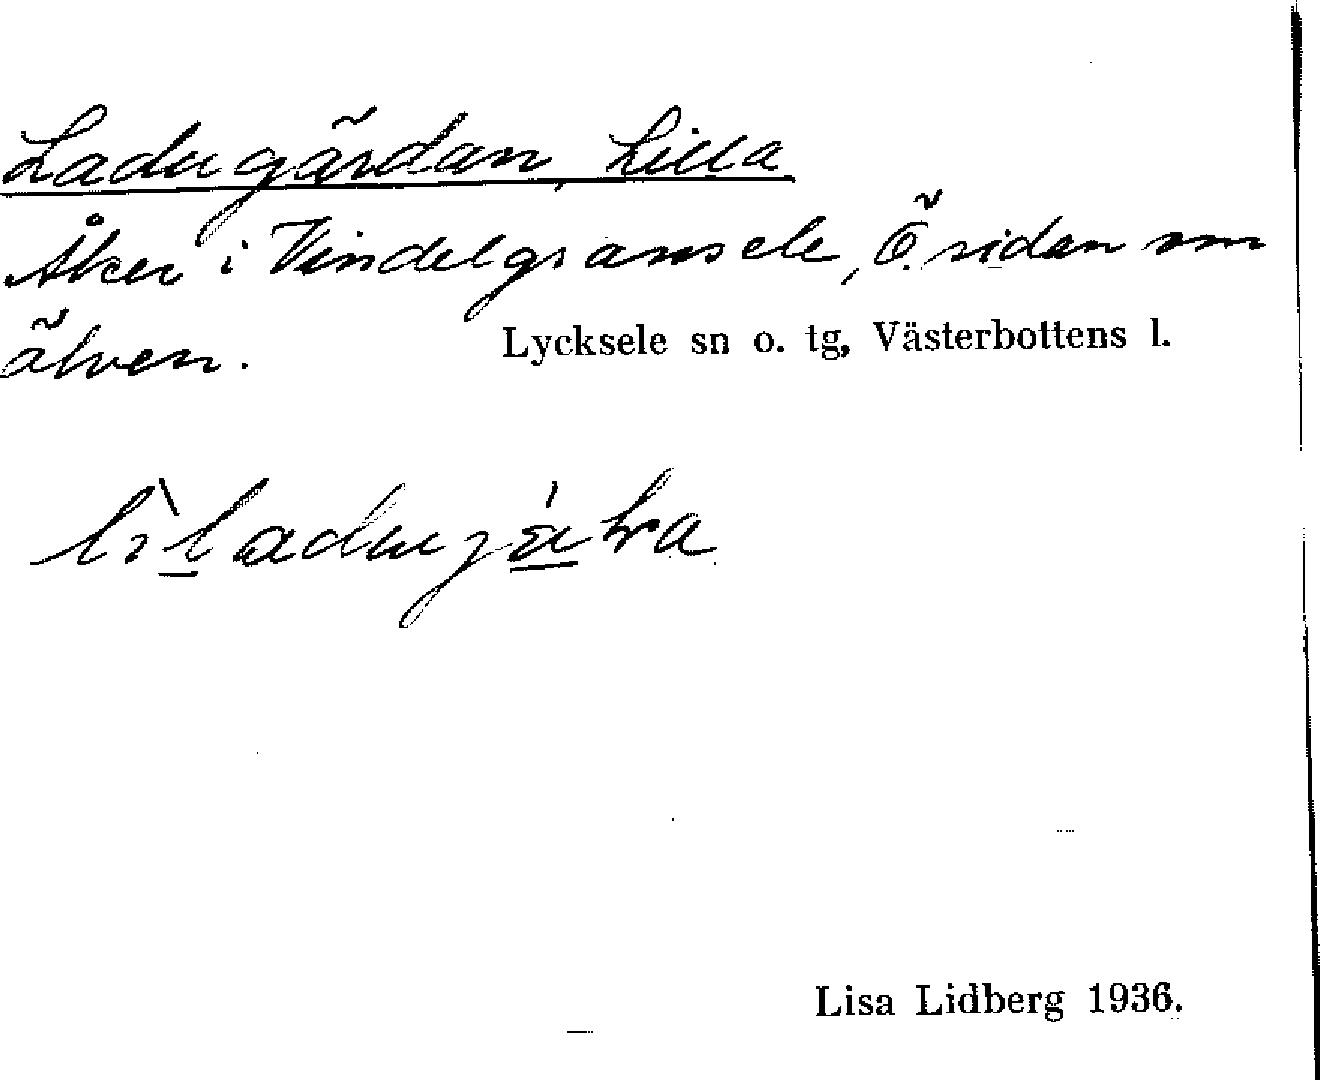 Ladugärdan, Lilla
Åker i Vindelgransele, Ö. sidan om
älven.
Lycksele sn o. tg, Västerbottens l.
Lisa Lidberg 1936.